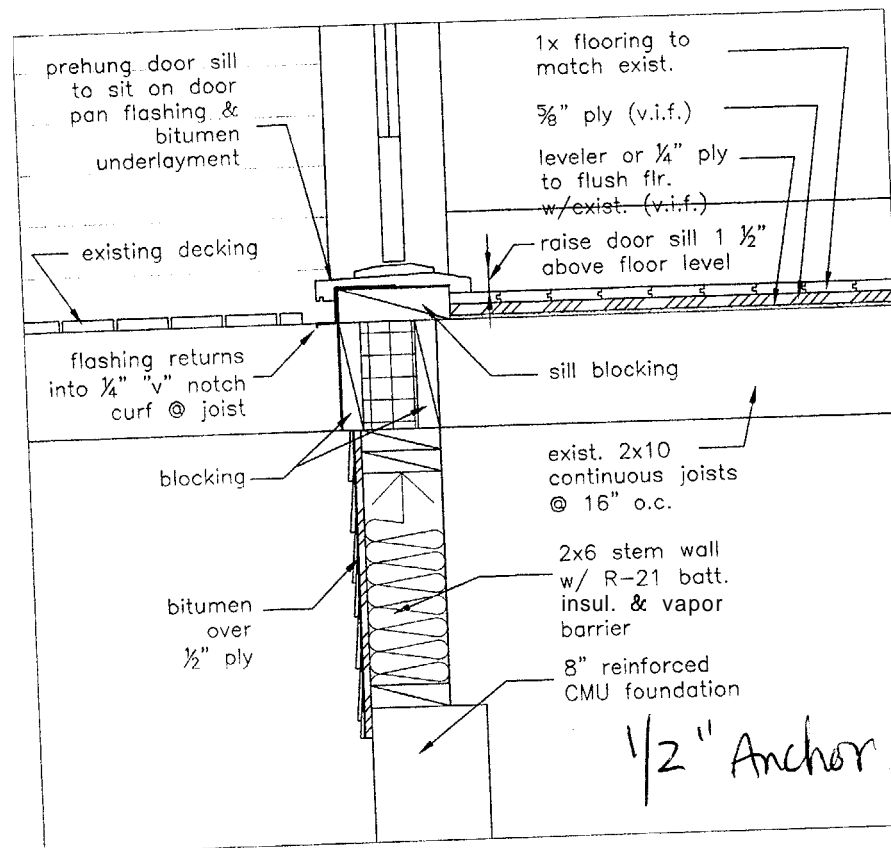 prehung door sill
to sit on door
pan flashing &
bitumen
underlayment
1x flooring to
match exist.
⅝" ply (v.i.f.)
leveler or ¼" ply
to flush flr.
w/exist. (v.i.f.)
existing decking
raise door sill 1 ½"
above floor level
flashing returns
into ¼" "v" notch
curf @ joist
sill blocking
blocking
exist. 2x10
continuous joists
@ 16" o.c.
2x6 stem wall
w/ R-21 batt.
insul. & vapor
barrier
bitumen
over
½" ply
8" reinforced
CMU foundation
1/2" Anchor